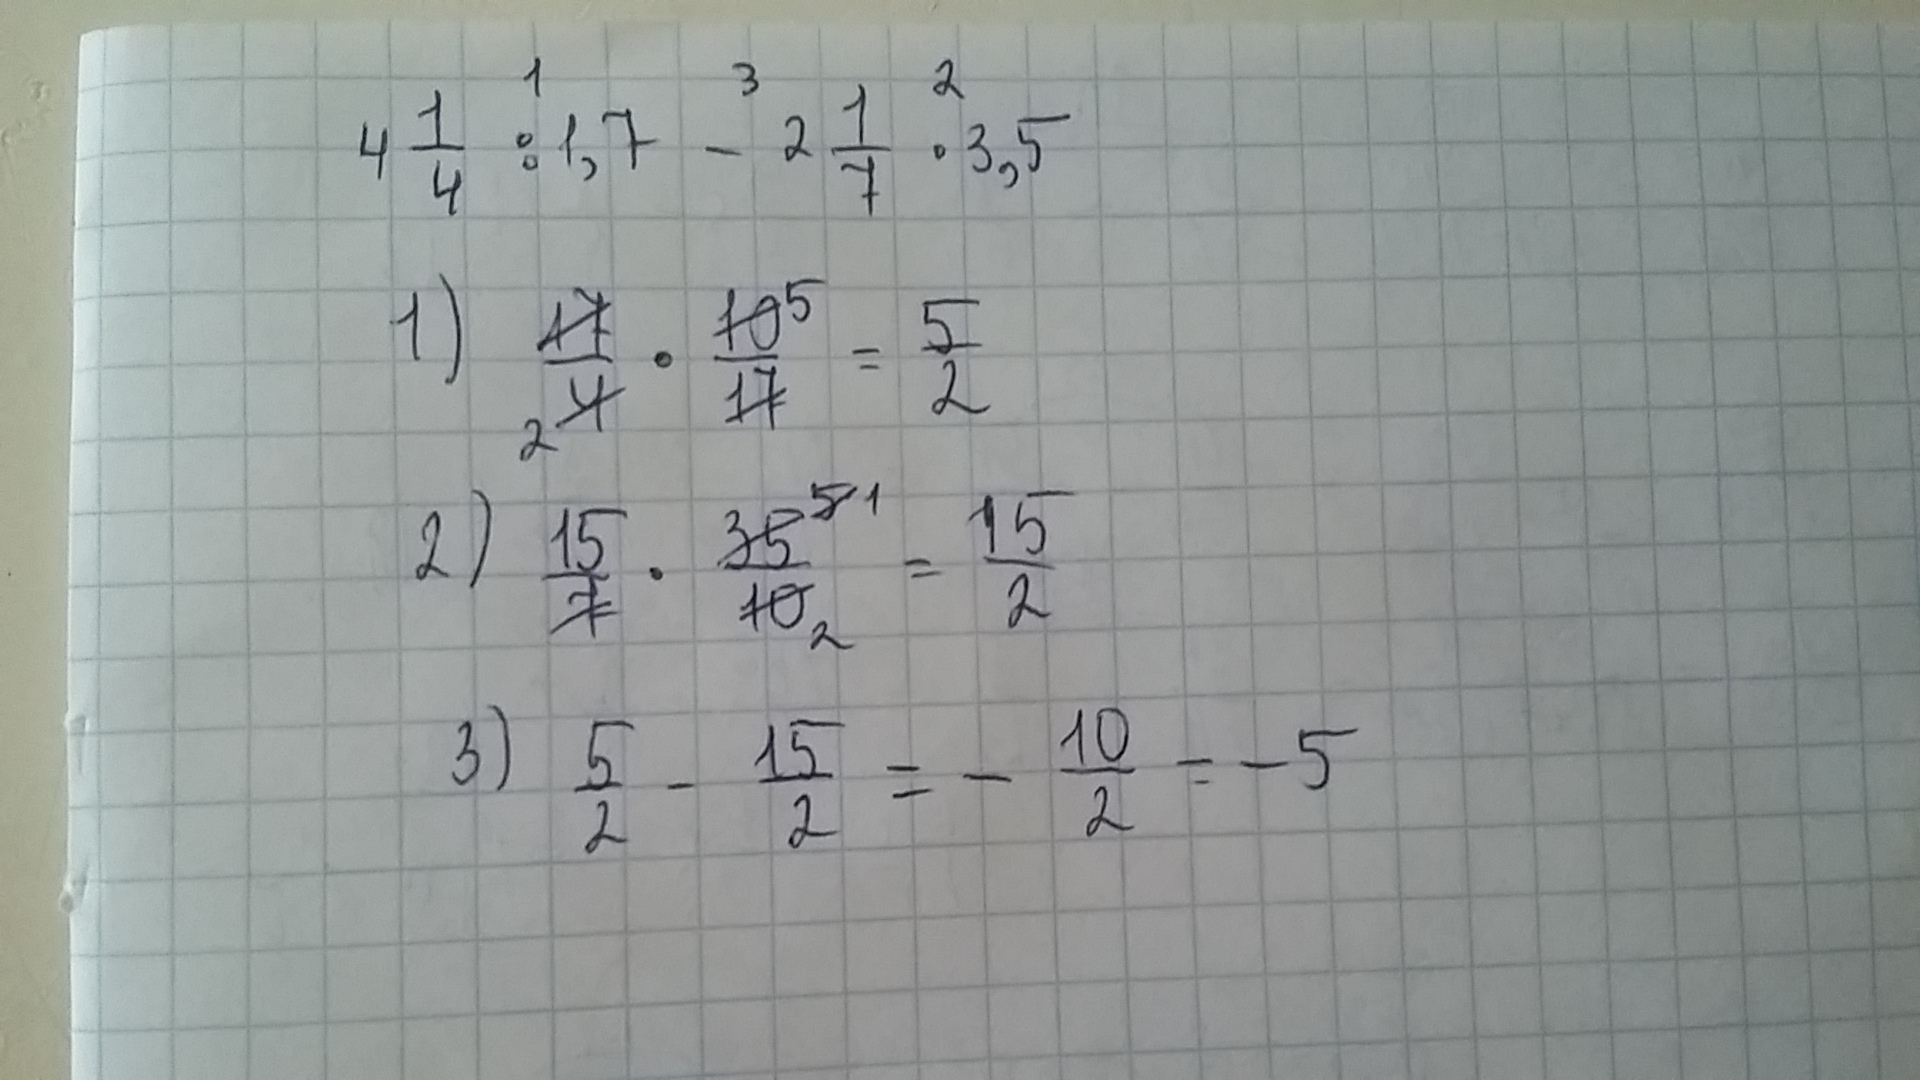 1 3 2
4 1/4 : 1,7 - 2 1/7 · 3,5
1) 17/4 2 · 10 5/17 = 5/2
2) 15/7 · 35 5 1/10 2 = 15/2
3) 5/2 - 15/2 = - 10/2 = -5